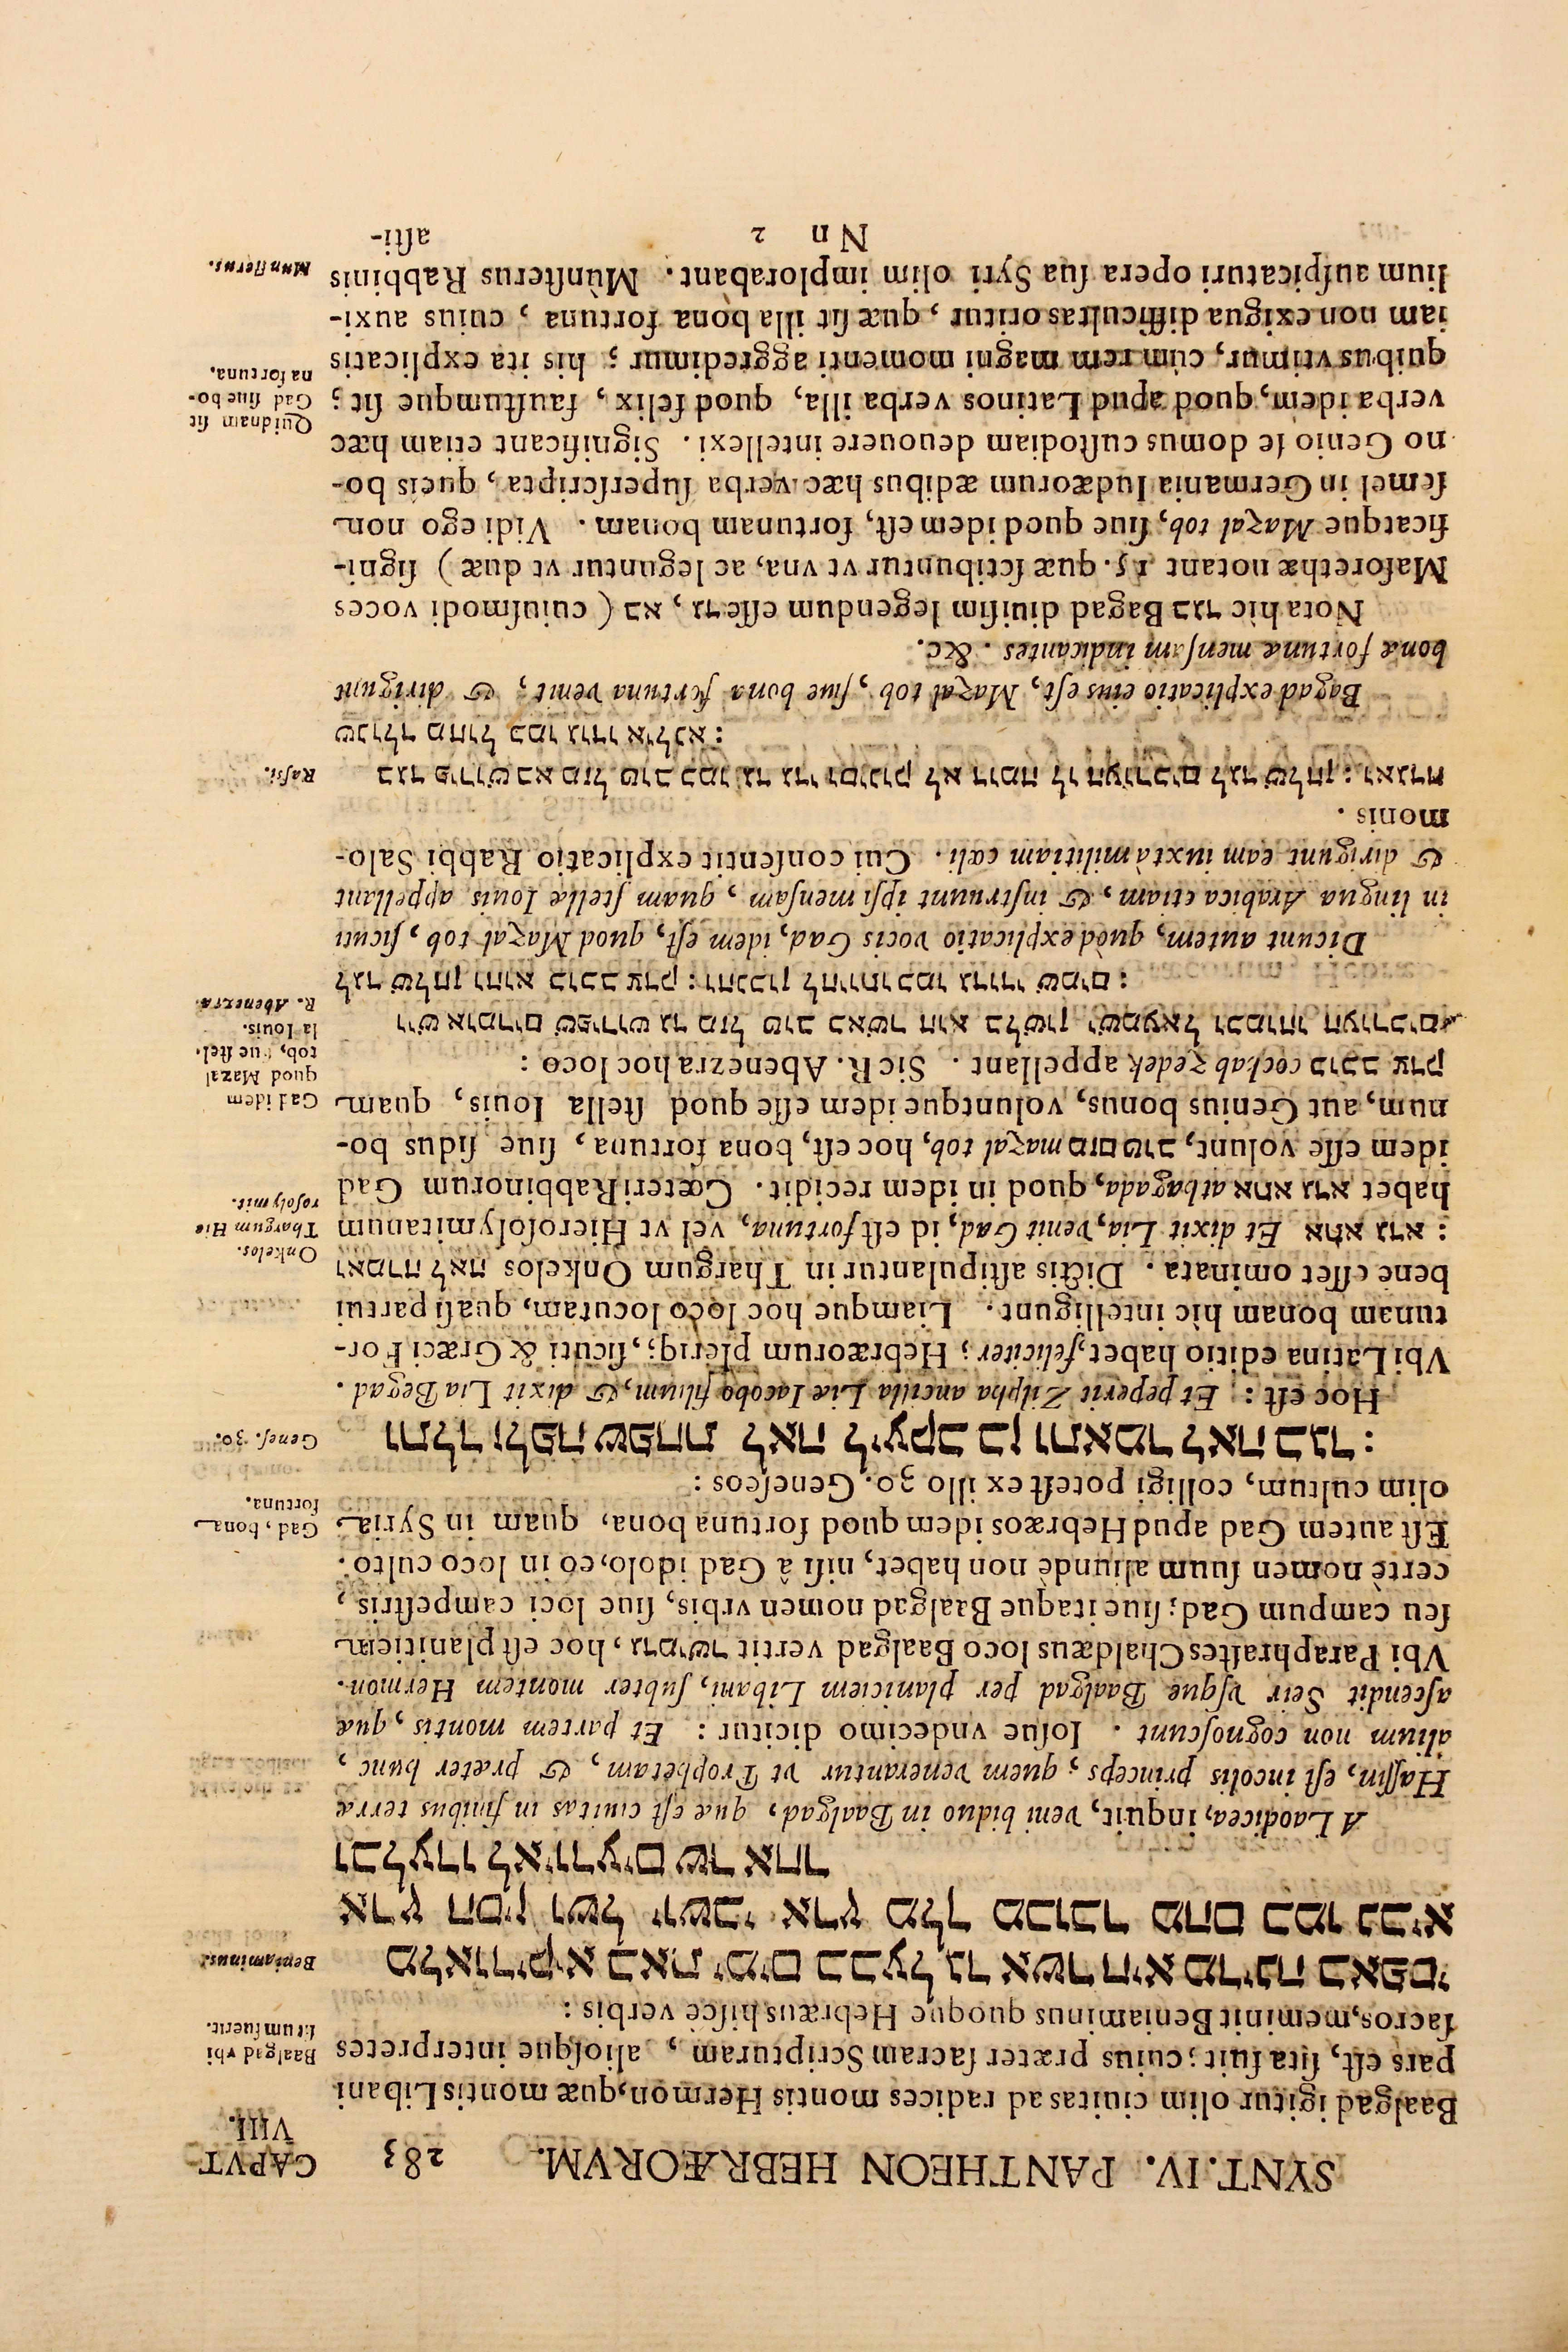 SYNT. IV. PANTHEON HEBRÆORVM. 283
CAPVT
VIII.
Baalgad igitur olim ciuitas ad radices montis Hermon, quæ montis Libani
pars est, sita fuit; cuius præter sacram Scripturam, aliosque interpretes
sacros, meminit Beniaminus quoque Hebræus hisce verbis:
Baalgad vbi
situm fuerit.
מלאודיקיא באת ימים בבעל גד אשר היא מדינה באפסי
ארץ חסין ושל יושבי ארץ מלך מכובד מהם כמו נביא
ובלעדו לא יודעים שר אחר
Beniaminus.
A Laodicea, inquit, veni biduo in Baalgad, quæ est ciuitas in finibus terræ
Hassin, est incolis princeps; quem venerantur vt Prophetam, & præter hunc,
alium non cognoscunt. Iosue vndecimo dicitur: Et partem montis, quæ
ascendit Seir vsque Baalgad per planiciem Libani, subter montem Hermon.
Vbi Paraphrastes Chaldæus loco Baalgad vertit גדמישר, hoc est planitiem
seu campum Gad; siue itaque Baalgad nomen vrbis, siue loci campestris,
certè nomen suum aliundè non habet, nisi à Gad idolo, eo in loco culto.
Est autem Gad apud Hebræos idem quod fortuna bona, quam in Syria
olim cultum, colligi potest ex illo 30. Geneseos:
Gad, bona
fortuna.
ותלד זלפה שפחת לאה ליעקב בן ותאמר לאה בגד:
Genes. 30.
Hoc est: Et peperit Zilpha ancilla Liæ Iacobo filium, & dixit Lia Begad.
Vbi Latina editio habet, feliciter; Hebræorum pleriq;, sicuti & Græci For-
tunam bonam hìc intelligunt. Liamque hoc loco locutam, quasi partui
bene esset ominata. Dictis astipulantur in Thargum Onkelos ואמרה לאה
: אתא גדא Et dixit Lia, venit Gad, id est fortuna, vel vt Hierosolymitanum
habet אתא גדא atbagada, quod in idem recidit. Cœteri Rabbinorum Gad
Onkelos.
Thargum Hie
rosolymit.
idem esse volunt, מזםטוב mazal tob, hoc est, bona fortuna, siue sidus bo-
num, aut Genius bonus, voluntque idem esse quod stella Iouis, quam
כוכב צדק cochab zedek appellant. Sic R. Abenezra hoc loco:
Gad idem
quod Mazal
tob, siue stel-
la Iouis.
ויש אומרים שפירוש גד מזל טוב כאשר הוא בלשון ישמעאל וכמוהו העורכים
לגד שלחן והוא כוכב צדק: והנכון להיותו כמו גדודי שמים:
R. Abenezra.
Dicunt autem, quòd explicatio vocis Gad, idem est, quod Mazal tob, sicuti
in lingua Arabica etiam, & instruunt ipsi mensam, quam stellæ Iouis appellant
& dirigunt eam iuxta militiam cæli. Cui consentit explicatio Rabbi Salo-
monis.
בגד פירוש בא מזל טוב כמו גד גדי וסינוק לא דומה לו העורכים לגד שלחן: ואגדה
שנולד מהול כמו גודו אילנא:
Rassi.
Bagad explicatio eius est, Mazal tob, siue bona fortuna venit, & dirigunt
bonæ fortunæ mensam indicantes. &c.
Nota hìc בגד Bagad diuisim legendum esse גד, בא (cuiusmodi voces
Masorethæ notant 15. quæ scribuntur vt vna, ac leguntur vt duæ) signi-
ficatque Mazal tob, siue quod idem est, fortunam bonam. Vidi ego non
semel in Germania Iudæorum ædibus hæc verba superscripta, queis bo-
no Genio se domus custodiam deuouere intellexi. Significant etiam hæc
verba idem, quod apud Latinos verba illa, quod felix, faustumque sit;
quibus vtimur, cùm rem magni momenti aggredimur; his ita explicatis
iam non exigua difficultas oritur, quæ sit illa bona fortuna, cuius auxi-
lium auspicaturi opera sua Syri olim implorabant. Mùnsterus Rabbinis
Quidnam sit
Gad siue bo-
na fortuna.
Munsterus.
Nn 2 asti-